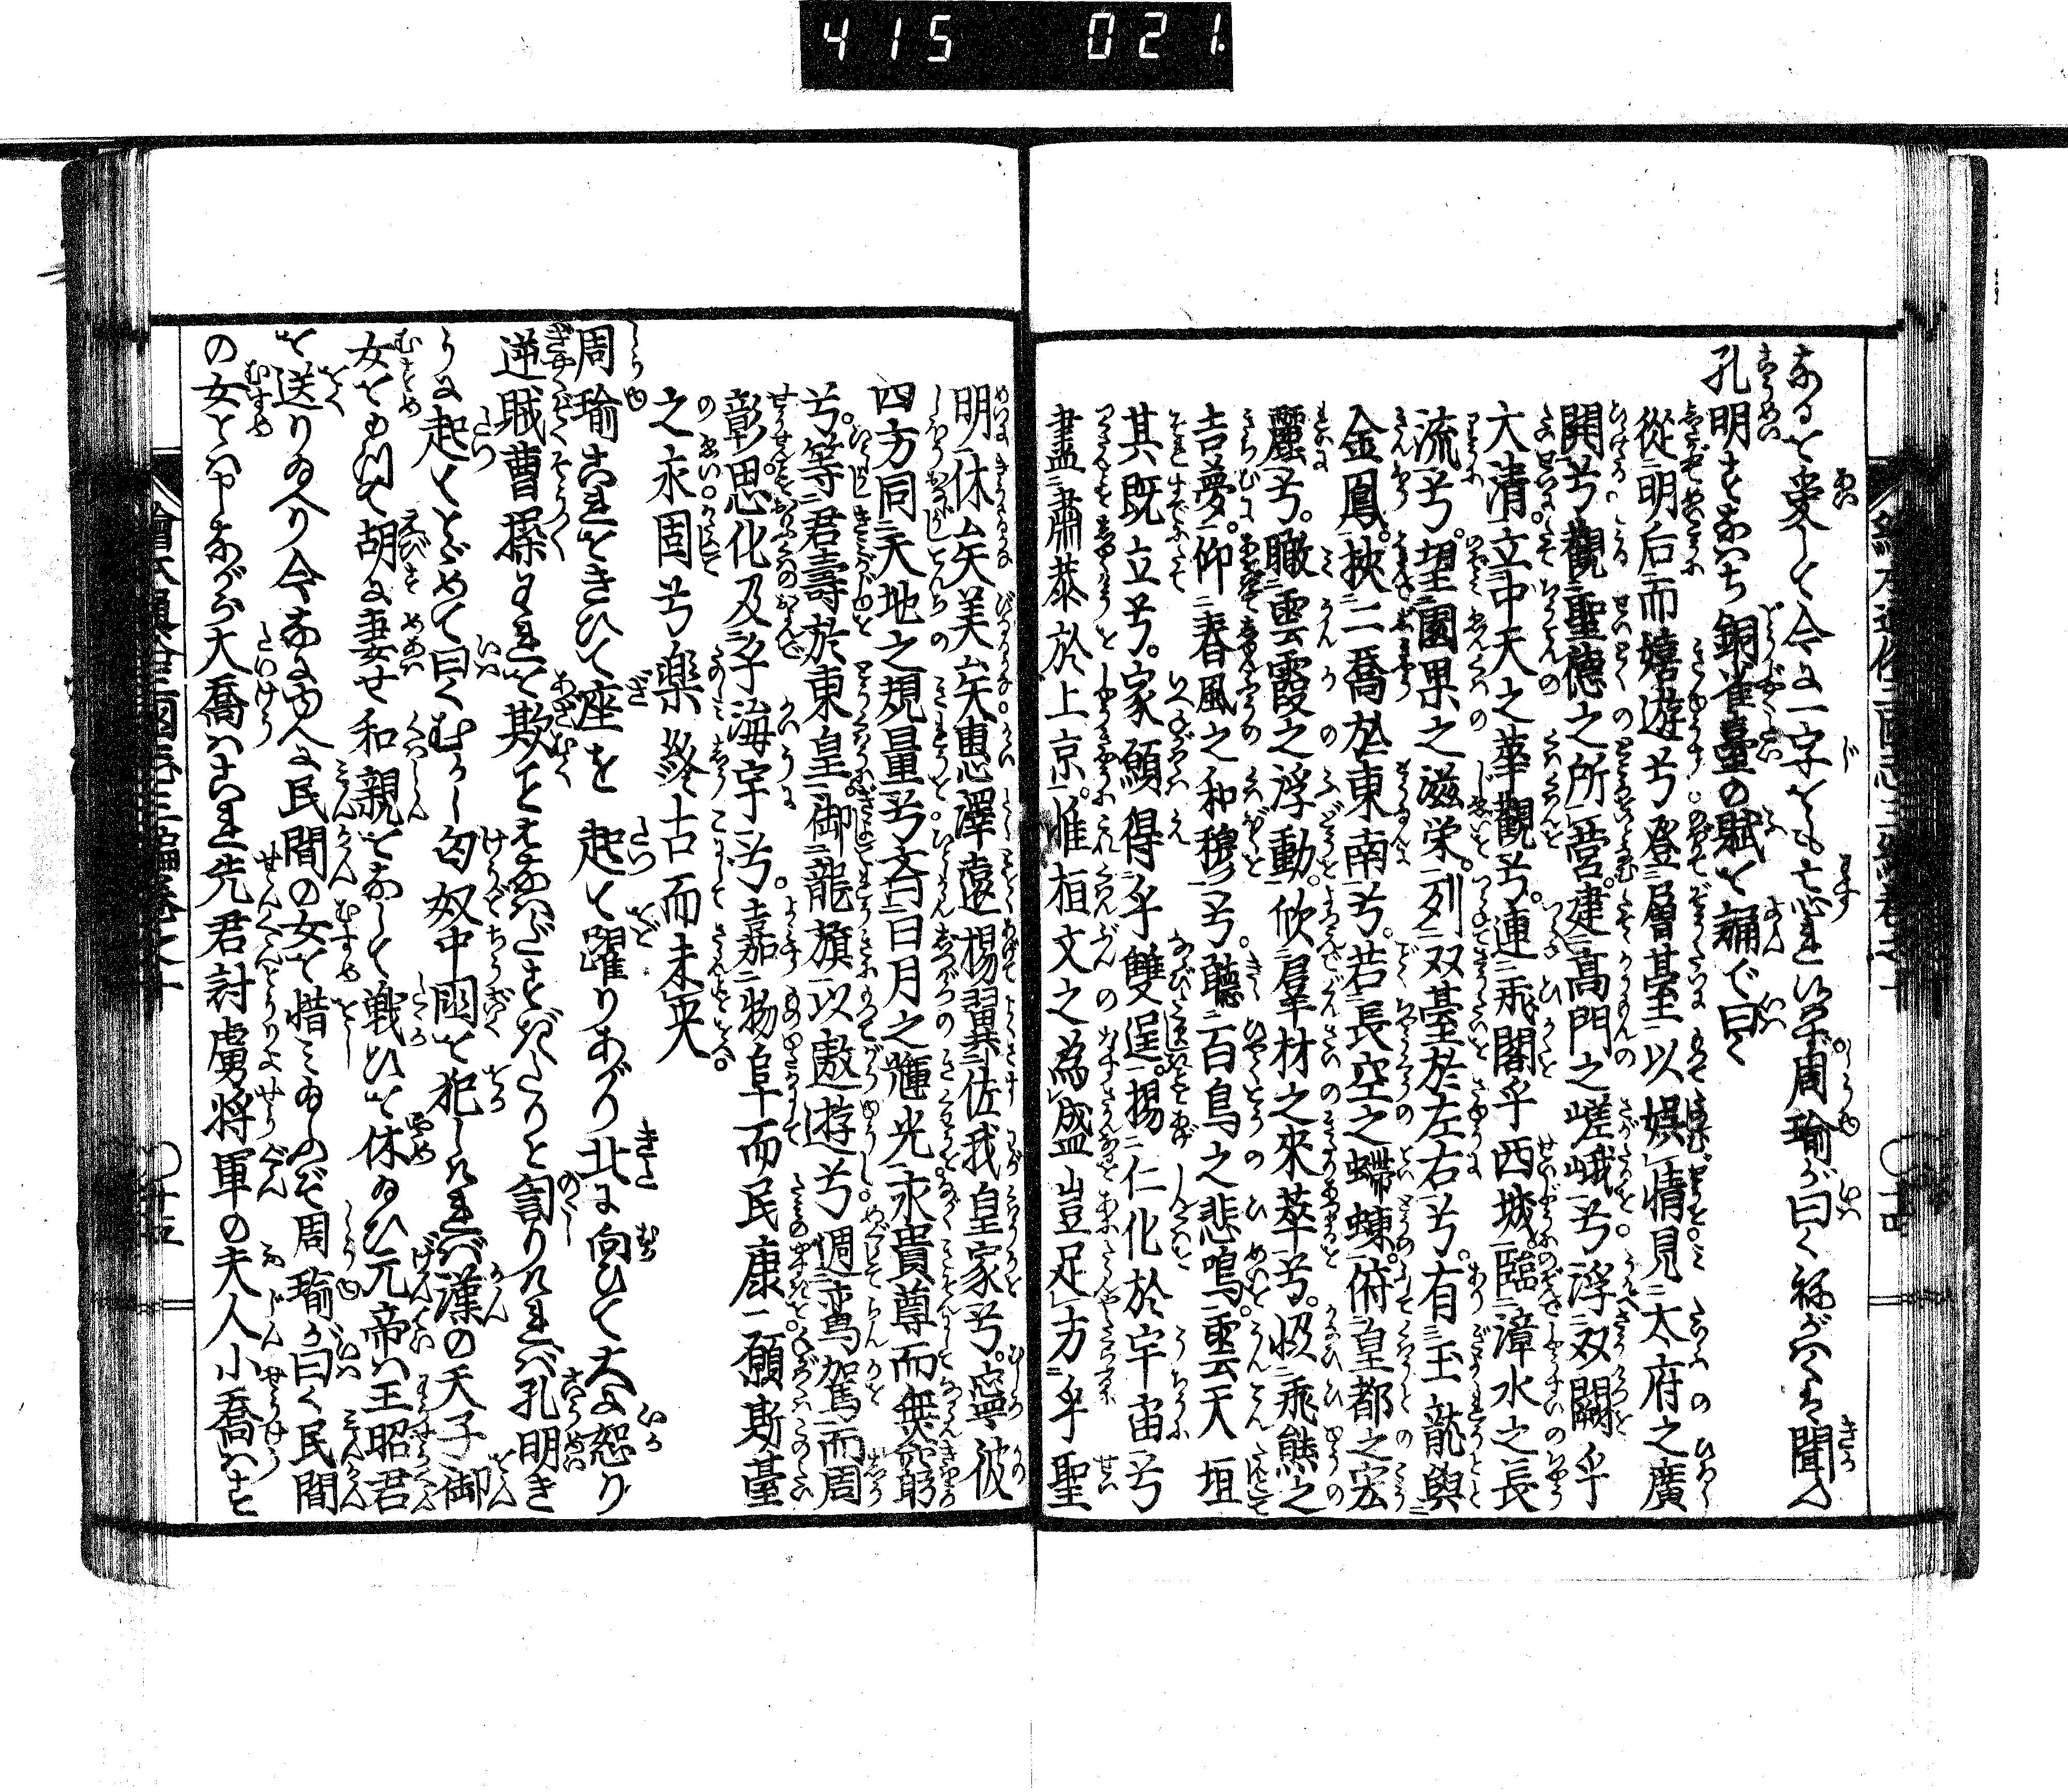 415 021
なるを愛して今に一字をも忘れ候はず周瑜が曰く祢がはくは聞ん
孔明すなはち銅雀臺の賦を誦で曰く
從明后而嬉遊兮登層臺以娯情見太府之廣
開兮觀聖德之所營建高門之嵯峨兮浮双闕乎
大清立中天之華觀兮連飛閣乎西城臨漳水之長
流兮望園果之滋栄列双臺於左右兮有玉龍與
金鳳挾二喬於東南兮若長空之蝃蝀俯皇都之宏
麗兮瞰雲霞之浮動欣羣材之來萃兮恊飛熊之
吉夢仰春風之和穆兮聽百鳥之悲鳴雲天垣
其既立兮家願得乎雙逞揚仁化於宇宙兮
盡肅恭於上京惟桓文之為盛豈足方乎聖
明休矣美矣惠澤遠楊翼佐我皇家兮寧彼
四方同天地之規量兮斉日月之輝光永貴尊而無窮
兮等君壽於東皇御龍旗以遨遊兮迴鸞駕而周
彰思化及乎海宇兮嘉物阜而民康願斯臺
之永固兮樂終古而未央
周瑜これをきひて座を起て躍りあがり北に向ひて大に怒り
逆賊曹操われを欺くことはなはだすぎたりと罰りければ孔明き
うに起てとどめて曰くむかし匈奴中国を犯しければ漢の天子御
女をもつて胡に妻せ和親をなして戦ひを休ゐひ元帝は王昭君
を送りゐへり今なにゆへに民間の女を惜みゐふぞ周瑜が曰く民間
の女とは申ながら大喬はこれ先君討虜将軍の夫人小喬はすな